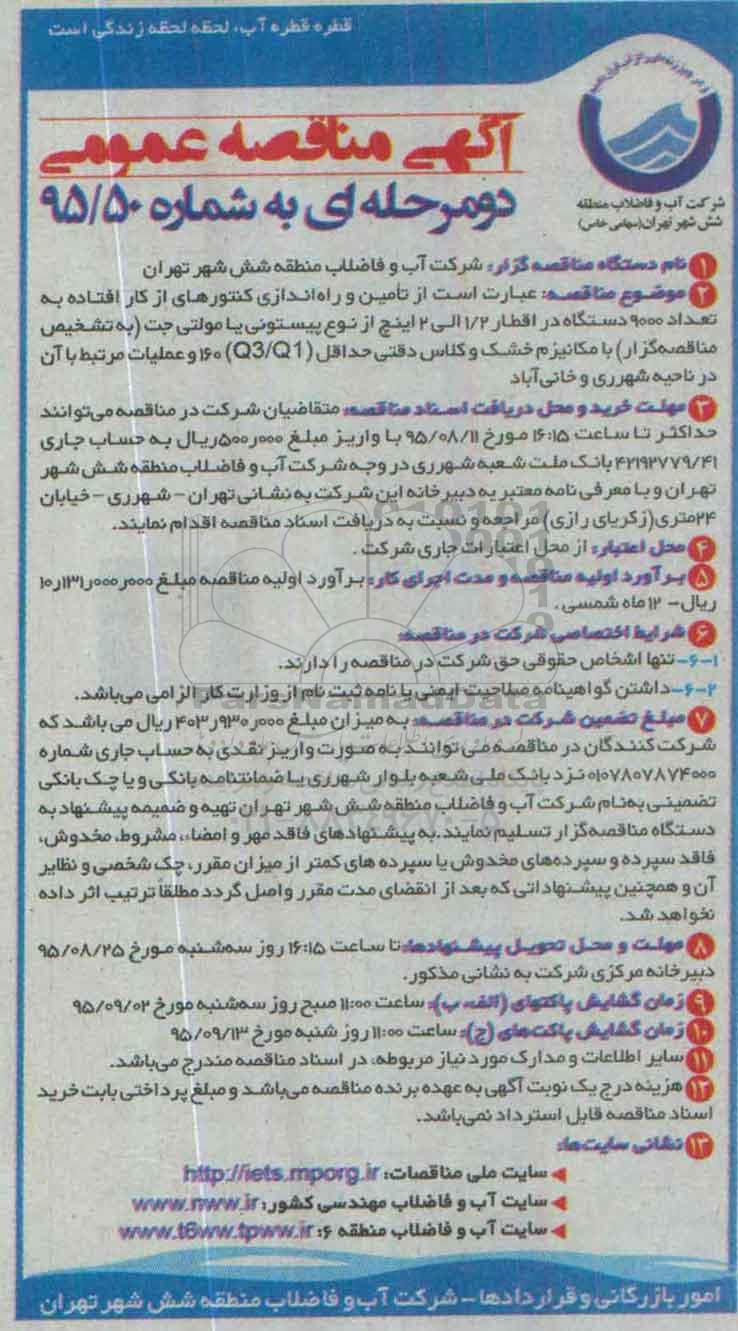 قطره قطره آب، لحظه لحظه زندگی است
شرکت آب و فاضلاب منطقه
شش شهر تهران (سهامی خاص)
آگهی مناقصه عمومی
دومرحله ای به شماره ۹۵/۵۰
۱ نام دستگاه مناقصه گزار: شرکت آب و فاضلاب منطقه شش شهر تهران
۲ موضوع مناقصه: عبارت است از تأمین و راه‌اندازی کنتورهای از کار افتاده به
تعداد ۹۰۰۰ دستگاه در اقطار ۱/۲ الی ۲ اینچ از نوع پیستونی یا مولتی جت (به تشخیص
مناقصه‌گزار) با مکانیزم خشک و کلاس دقتی حداقل (Q3/Q1) ۱۶۰ و عملیات مرتبط با آن
در ناحیه شهرری و خانی‌آباد
۳ مهلت خرید و محل دریافت اسناد مناقصه: متقاضیان شرکت در مناقصه می‌توانند
حداکثر تا ساعت ۱۶:۱۵ مورخ ۹۵/۰۸/۱۱ با واریز مبلغ ۵۰۰ر۰۰۰ ریال به حساب جاری
۴۲۱۹۲۷۷۹/۴۱ بانک ملت شعبه شهرری در وجه شرکت آب و فاضلاب منطقه شش شهر
تهران و با معرفی نامه معتبر به دبیرخانه این شرکت به نشانی تهران - شهرری - خیابان
۲۴متری (زکریای رازی) مراجعه و نسبت به دریافت اسناد مناقصه اقدام نمایند.
۴ محل اعتبار: از محل اعتبارات جاری شرکت .
۵ برآورد اولیه مناقصه و مدت اجرای کار: برآورد اولیه مناقصه مبلغ ۱۰ر۱۳۱ر۰۰۰ر۰۰۰
ریال- ۱۲ ماه شمسی .
۶ شرایط اختصاصی شرکت در مناقصه:
۶-۱- تنها اشخاص حقوقی حق شرکت در مناقصه را دارند.
۶-۲- داشتن گواهینامه صلاحیت ایمنی یا نامه ثبت نام از وزارت کار الزامی می‌باشد.
۷ مبلغ تضمین شرکت در مناقصه: به میزان مبلغ ۴۰۳ر۹۳۰ر۰۰۰ ریال می باشد که
شرکت کنندگان در مناقصه می توانند به صورت واریز نقدی به حساب جاری شماره
۰۱۰۷۸۰۷۸۷۴۰۰۰ نزد بانک ملی شعبه بلوار شهرری یا ضمانتنامه بانکی و یا چک بانکی
تضمینی به‌نام شرکت آب و فاضلاب منطقه شش شهر تهران تهیه و ضمیمه پیشنهاد به
دستگاه مناقصه‌گزار تسلیم نمایند. به پیشنهادهای فاقد مهر و امضاء، مشروط، مخدوش،
فاقد سپرده و سپرده‌های مخدوش یا سپرده های کمتر از میزان مقرر، چک شخصی و نظایر
آن و همچنین پیشنهاداتی که بعد از انقضای مدت مقرر واصل گردد مطلقاً ترتیب اثر داده
نخواهد شد.
۸ مهلت و محل تحویل پیشنهادها: تا ساعت ۱۶:۱۵ روز سه‌شنبه مورخ ۹۵/۰۸/۲۵
دبیرخانه مرکزی شرکت به نشانی مذکور.
۹ زمان گشایش پاکتهای (الف، ب): ساعت ۱۱:۰۰ صبح روز سه‌شنبه مورخ ۹۵/۰۹/۰۲
۱۰ زمان گشایش پاکت‌های (ج): ساعت ۱۱:۰۰ روز شنبه مورخ ۹۵/۰۹/۱۳
۱۱ سایر اطلاعات و مدارک مورد نیاز مربوطه، در اسناد مناقصه مندرج می‌باشد.
۱۲ هزینه درج یک نوبت آگهی به عهده برنده مناقصه می‌باشد و مبلغ پرداختی بابت خرید
اسناد مناقصه قابل استرداد نمی‌باشد.
۱۳ نشانی سایت‌ها:
سایت ملی مناقصات: http://iets.mporg.ir
سایت آب و فاضلاب مهندسی کشور: www.nww.ir
سایت آب و فاضلاب منطقه ۶: www.t6ww.tpww.ir
امور بازرگانی و قراردادها - شرکت آب و فاضلاب منطقه شش شهر تهران
ParsNamadData